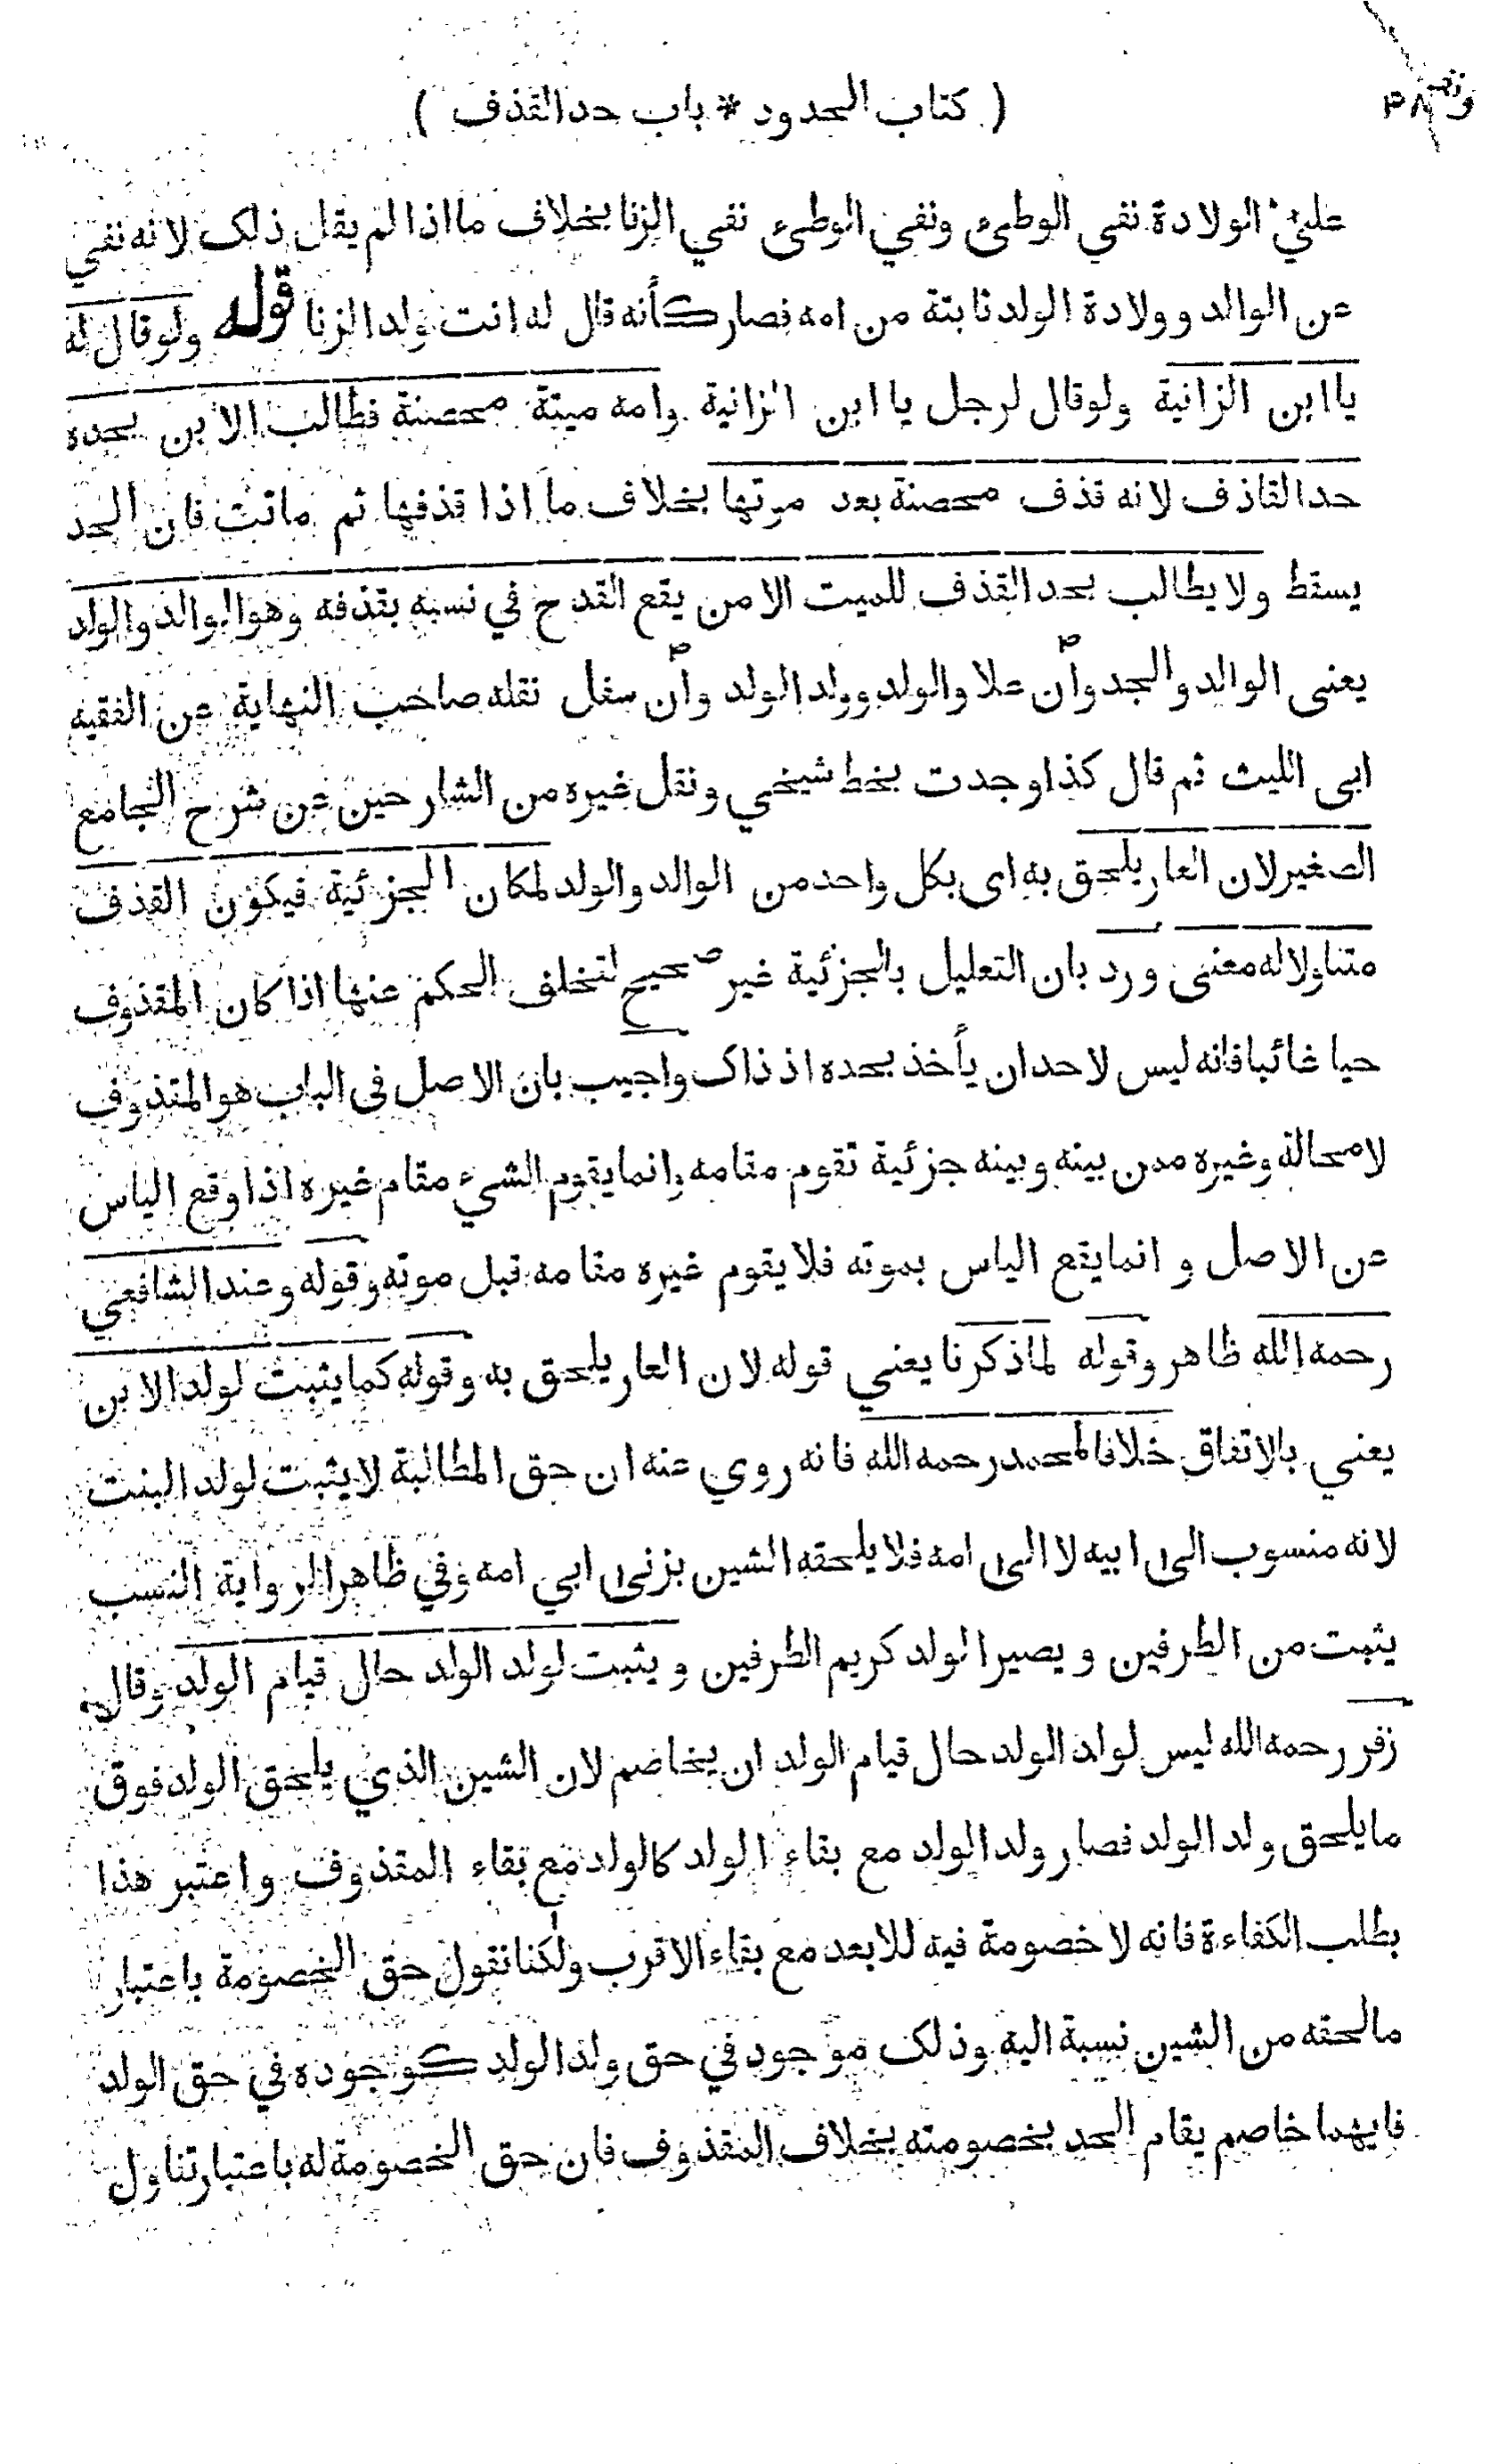 ( كتاب الحدود * باب حد القذف )
على الولادة نفي الوطىء ونفي الوطىء نفي الزنا بخلاف ما اذا لم يقل ذلك لانه نفي
عن الوالد وولادة الولد ثابتة من امه فصار كأنه قال له انت ولد الزنا قوله ولو قال له
يا ابن الزانية ولو قال لرجل يا ابن الزانية وامه ميتة محصنة فطالب الابن بحده
حد القاذف لانه قذف محصنة بعد موتها بخلاف ما اذا قذفها ثم ماتت فان الحد
يسقط ولا يطالب بحد القذف للميت الا من يقع القدح في نسبه بقذفه وهو الوالد والولد
يعنى الوالد والجد وان علا والولد وولد الولد وان سفل نقله صاحب النهاية عن الفقيه
ابى الليث ثم قال كذا وجدت بخط شيخي ونقل غيره من الشارحين عن شرح الجامع
الصغير لان العار يلحق به اى بكل واحد من الوالد والولد لمكان الجزئية فيكون القذف
متناولا له معنى ورد بان التعليل بالجزئية غير صحيح لتخلف الحكم عنها اذا كان المقذوف
حيا غائبا فانه ليس لاحد ان يأخذ بحده اذ ذاك واجيب بان الاصل فى الباب هو المقذوف
لا محالة وغيره ممن بينه وبينه جزئية تقوم مقامه وانما يقوم الشيء مقام غيره اذا وقع الياس
عن الاصل و انما يقع الياس بموته فلا يقوم غيره مقامه قبل موته وقوله وعند الشافعي
رحمه الله ظاهر وقوله لما ذكرنا يعني قوله لان العار يلحق به وقوله كما يثبت لولد الابن
يعني بالاتفاق خلافا لمحمد رحمه الله فانه روي عنه ان حق المطالبة لا يثبت لولد البنت
لانه منسوب الى ابيه لا الى امه فلا يلحقه الشين بزنى ابي امه وفي ظاهر الرواية النسب
يثبت من الطرفين و يصير الولد كريم الطرفين و يثبت لولد الولد حال قيام الولد وقال
زفر رحمه الله ليس لولد الولد حال قيام الولد ان يخاصم لان الشين الذي يلحق الولد فوق
ما يلحق ولد الولد فصار ولد الولد مع بقاء الولد كالولد مع بقاء المقذوف واعتبر هذا
بطلب الكفاءة فانه لا خصومة فيه للابعد مع بقاء الاقرب ولكنا نقول حق الخصومة باعتبار
ما لحقه من الشين نسبة اليه وذلك موجود في حق ولد الولد كوجوده في حق الولد
فايهما خاصم يقام الحد بخصومته بخلاف المقذوف فان حق الخصومة له باعتبار تناول